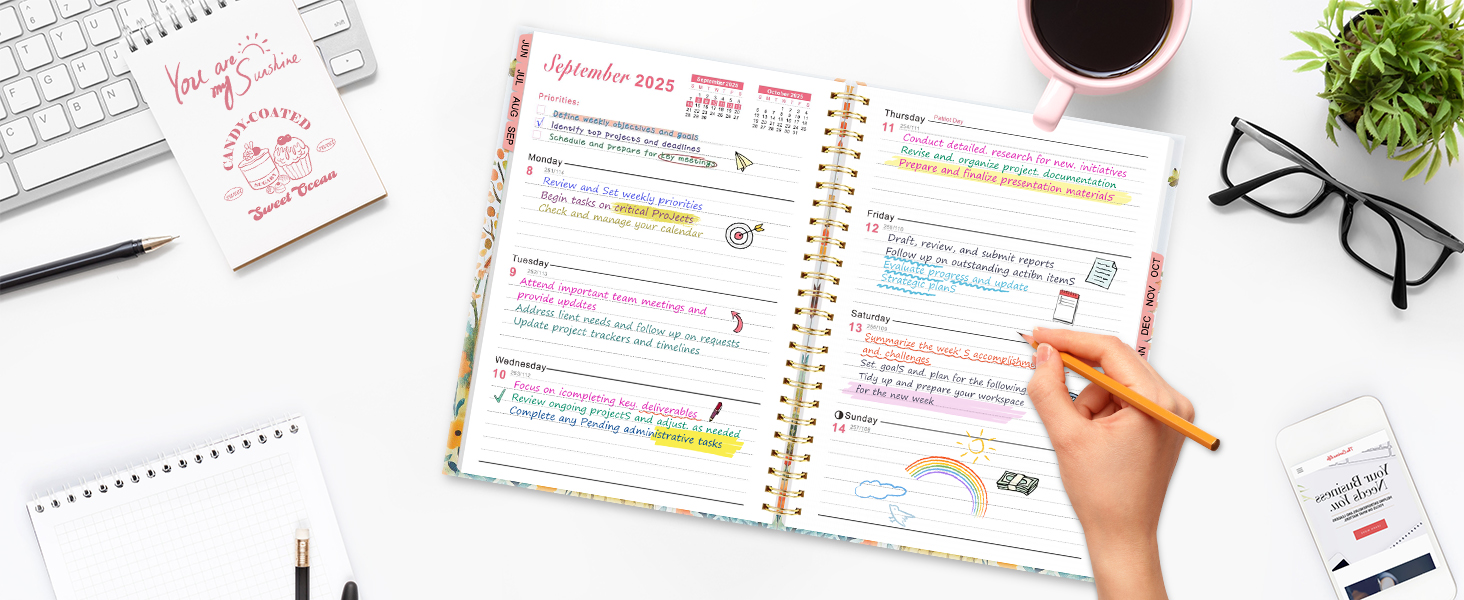 You are
my Sunshine
CANDY-COATED
SWEET
SWEET
SUGARY
Sweet Ocean
JUN
JUL
AUG
SEP
September 2025
September 2025
October 2025
S M T W T F S
S M T W T F S
Priorities:
Define weekly objectives and goals
Identify top projects and deadlines
Schedule and prepare for key meetings
Monday
8
251/114
Review and Set weekly priorities
Begin tasks on critical ProJects
Check and manage your calendar
Tuesday
9
252/113
Attend important team meetings and
provide updates
Address lient needs and follow up on requests
Update project trackers and timelines
Wednesday
10
253/112
Focus on icompleting key. deliverables
Review ongoing projectS and adjust. as needed
Complete any Pending administrative tasks
Thursday
Patriot Day
11
254/111
Conduct detailed. research for new. initiatives
Revise and. organize project. documentation
Prepare and finalize presentation materialS
Friday
12
255/110
Draft, review, and submit reports
Follow up on outstanding actibn itemS
Evaluate progress and update
Strategic planS
Saturday
13
256/109
Summarize the week' S accomplishme
and. challenges
Set. goalS and. plan for the following
Tidy up and prepare your workspace
for the new week
Sunday
14
257/108
OCT
NOV
DEC
AN
Your Business
Needs You.